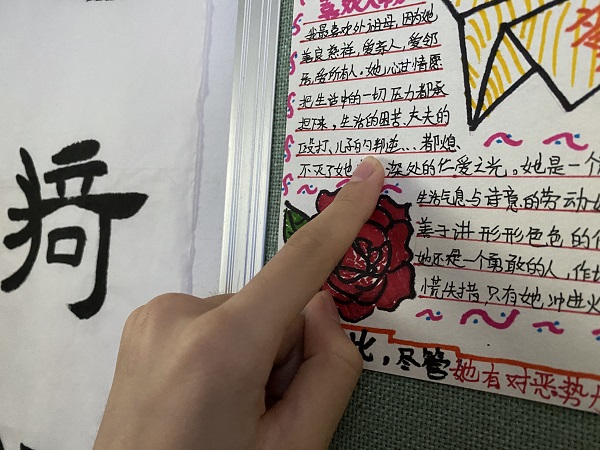 喜欢人物
我最喜欢外祖母，因为她
善良慈祥，爱亲人，爱邻
居，爱所有人。她心甘情愿
把生活中的一切压力都承
担下来，生活的困苦、丈夫的
殴打、儿子的叛逆…都熄
不灭了她 深处的仁爱之光。她是一个
生活气息与诗意的劳动
善于讲形形色色的
她还是一个勇敢的人，作
慌失措，只有她，冲进火
此，尽管她有对恶势